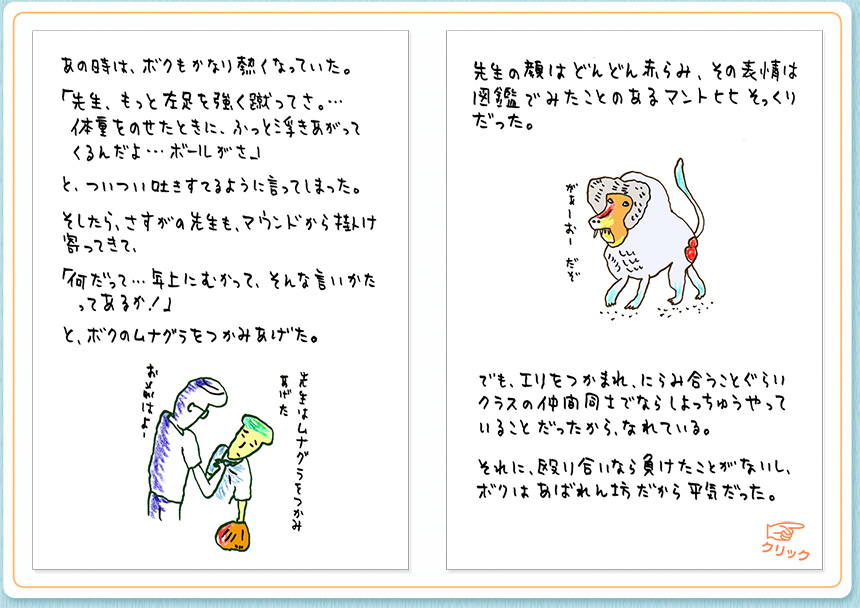 あの時は、ボクもかなり熱くなっていた。
「先生、もっと左足を強く蹴ってさ。…
体重をのせたときに、ふっと浮きあがって
くるんだよ…ボールがさ」
と、ついつい吐きすてるように言ってしまった。
そしたら、さすがの先生も、マウンドから掛け
寄ってきて、
「何だって…年上にむかって、そんな言いかた
ってあるか！」
と、ボクのムナグラをつかみあげた。
先生はムナグラをつかみ
あげた
おめえはよー
先生の顔はどんどん赤らみ、その表情は
図鑑でみたことのあるマントヒヒそっくり
だった。
があーおー だぞ
でも、エリをつかまれ、にらみ合うことぐらい
クラスの仲間同士でならしょっちゅうやって
いることだったから、なれている。
それに、殴り合いなら負けたことがないし、
ボクはあばれん坊だから平気だった。
クリック